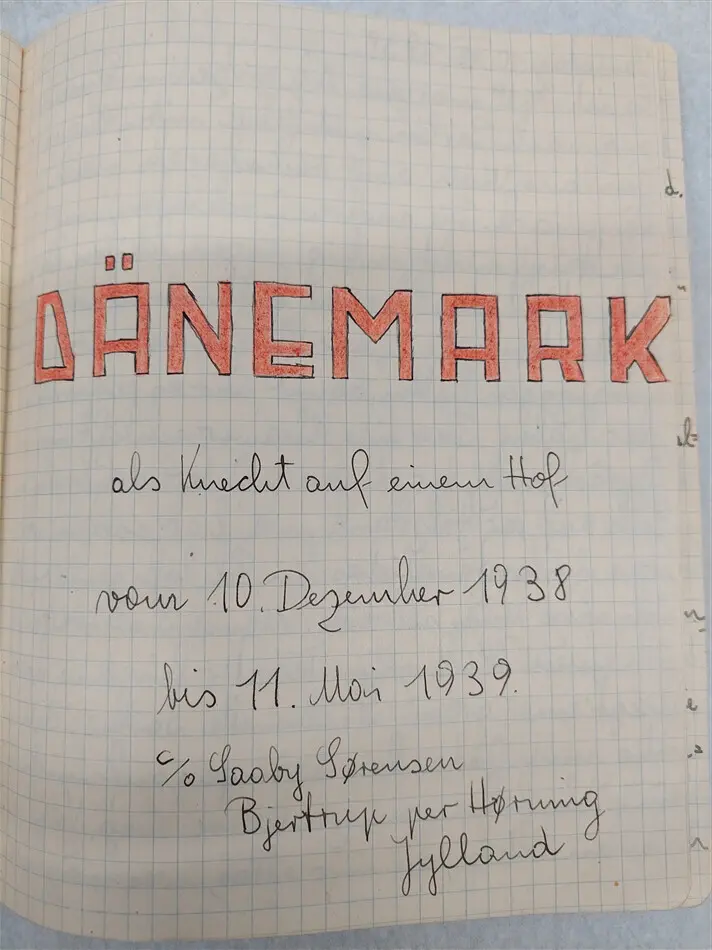 DÄNEMARK
als Knecht auf einem Hof
vom 10. Dezember 1938
bis 11. Mai 1939.
c/o Saaby Sørensen
Bjertrup per Hørning
Jylland